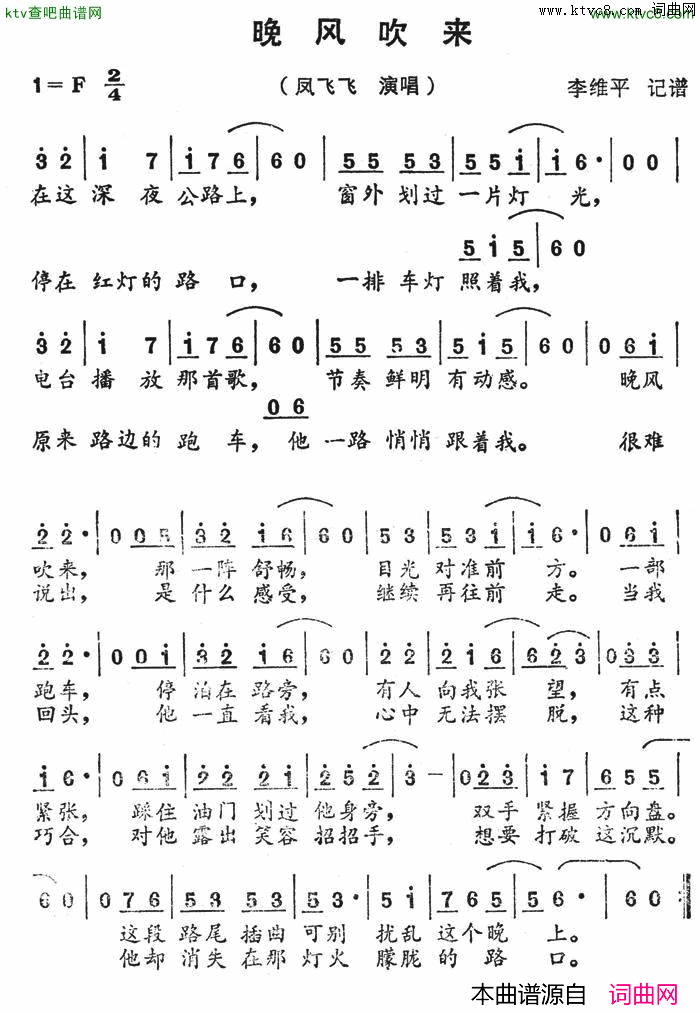 ktv查吧曲谱网
www.ktvc8.com 词曲网
www.ktvc8.com
晚风吹来
1=F 2/4
(凤飞飞 演唱)
李维平 记谱
3 2 | 1 7 | 1 7 6 6 | 6 0 | 5 5 5 3 | 5 5 1 | 1 6· | 0 0 |
在这 深 夜 公路上, 窗外 划过 一片灯 光,
5 1 5 | 6 0
停在 红灯的 路 口, 一排 车灯 照着我,
3 2 | 1 7 | 1 7 6 6 | 6 0 | 5 5 5 3 | 5 1 5 | 6 0 | 0 6 1 |
电台 播 放 那首歌, 节奏 鲜明 有动感。 晚风
0 6
原来 路边的 跑 车, 他 一路 悄悄 跟着我。 很难
2 2· | 0 0 5 | 3 2 1 6 | 6 0 | 5 3 | 5 3 1 | 1 6· | 0 6 1 |
吹来, 那 一阵 舒畅, 目光 对准前 方。 一部
说出, 是 什么 感受, 继续 再往前 走。 当我
2 2· | 0 0 1 | 3 2 1 6 | 6 0 | 2 2 | 2 1 6 | 6 2 3 | 0 3 3 |
跑车, 停 泊在 路旁, 有人 向我张 望, 有点
回头, 他 一直 看我, 心中 无法摆 脱, 这种
1 6· | 0 6 1 | 2 2 2 1 | 2 5 2 | 3 — | 0 2 3 | 1 7 | 6 5 5 |
紧张, 踩住 油门 划过 他身旁, 双手 紧握 方向盘。
巧合, 对他 露出 笑容 招招手, 想要 打破 这沉默。
6 0 | 0 7 6 | 5 3 5 3 | 5 3· | 5 1 | 7 6 5 | 5 6· | 6 0 :||
这段 路尾 插曲 可别 扰乱 这个晚 上。
他却 消失 在那 灯火 朦胧 的 路 口。
本曲谱源自 词曲网